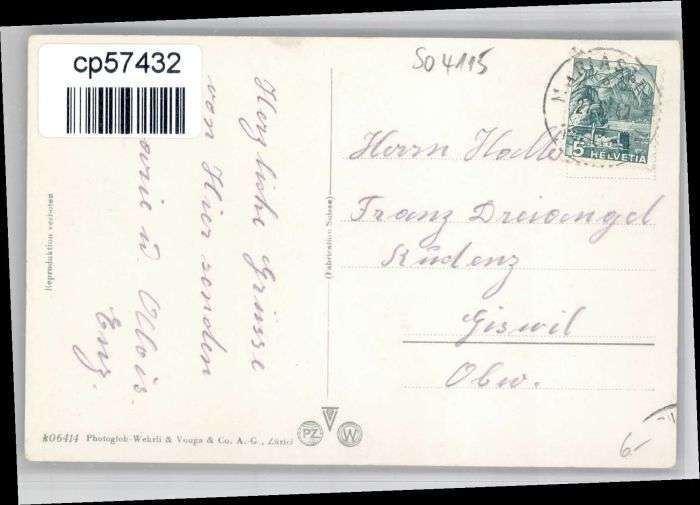 cp57432
SO 4115
MARIAST
5 HELVETIA
Herzliche Grüsse
von Hier senden
Marie u Alois
Enz.
Herrn
Franz Dreiangel
Rüdenz
Giswil
Obw.
Reproduktion verboten
(Fabrication Suisse)
k06414 Photoglob-Wehrli & Vouga & Co. A.-G., Zürich
PZ W
6.-